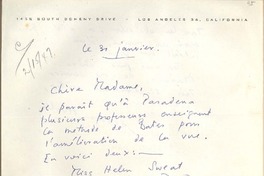 1735 SOUTH DOHENY DRIVE · LOS ANGELES 35, CALIFORNIA
le 31 janvier.
Chère Madame,
il paraît qu'à Pasadena
plusieurs professeurs enseignent
la méthode de Bates pour
l'amélioration de la vue.
En voici deux:—
Miss Helen Sweat